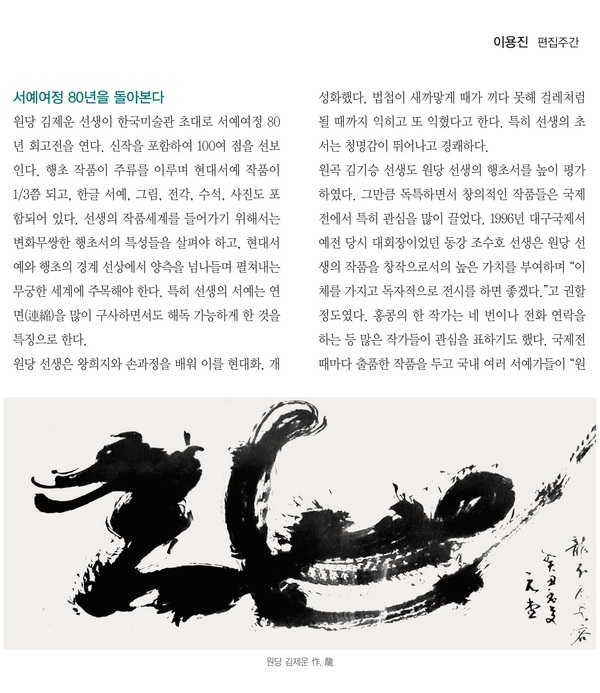 이용진 편집주간
서예여정 80년을 돌아본다
원당 김제운 선생이 한국미술관 초대로 서예여정 80
년 회고전을 연다. 신작을 포함하여 100여 점을 선보
인다. 행초 작품이 주류를 이루며 현대서예 작품이
1/3쯤 되고, 한글 서예, 그림, 전각, 수석, 사진도 포
함되어 있다. 선생의 작품세계를 들어가기 위해서는
변화무쌍한 행초서의 특성들을 살펴야 하고, 현대서
예와 행초의 경계 선상에서 양측을 넘나들며 펼쳐내는
무궁한 세계에 주목해야 한다. 특히 선생의 서예는 연
면(連綿)을 많이 구사하면서도 해독 가능하게 한 것을
특징으로 한다.
원당 선생은 왕희지와 손과정을 배워 이를 현대화, 개
성화했다. 법첩이 새까맣게 때가 끼다 못해 걸레처럼
될 때까지 익히고 또 익혔다고 한다. 특히 선생의 초
서는 청명감이 뛰어나고 경쾌하다.
원곡 김기승 선생도 원당 선생의 행초서를 높이 평가
하였다. 그만큼 독특하면서 창의적인 작품들은 국제
전에서 특히 관심을 많이 끌었다. 1996년 대구국제서
예전 당시 대회장이었던 동강 조수호 선생은 원당 선
생의 작품을 창작으로서의 높은 가치를 부여하며 “이
체를 가지고 독자적으로 전시를 하면 좋겠다.”고 권할
정도였다. 홍콩의 한 작가는 네 번이나 전화 연락을
하는 등 많은 작가들이 관심을 표하기도 했다. 국제전
때마다 출품한 작품을 두고 국내 여러 서예가들이 “원
元堂
원당 김제운 作, 龍